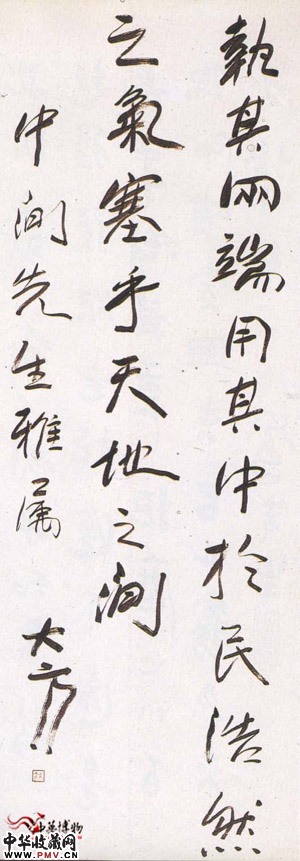 執其兩端用其中於民浩然
之氣塞乎天地之間
中間先生雅屬
大方
中華博物
中华收藏网
www.PMV.CN